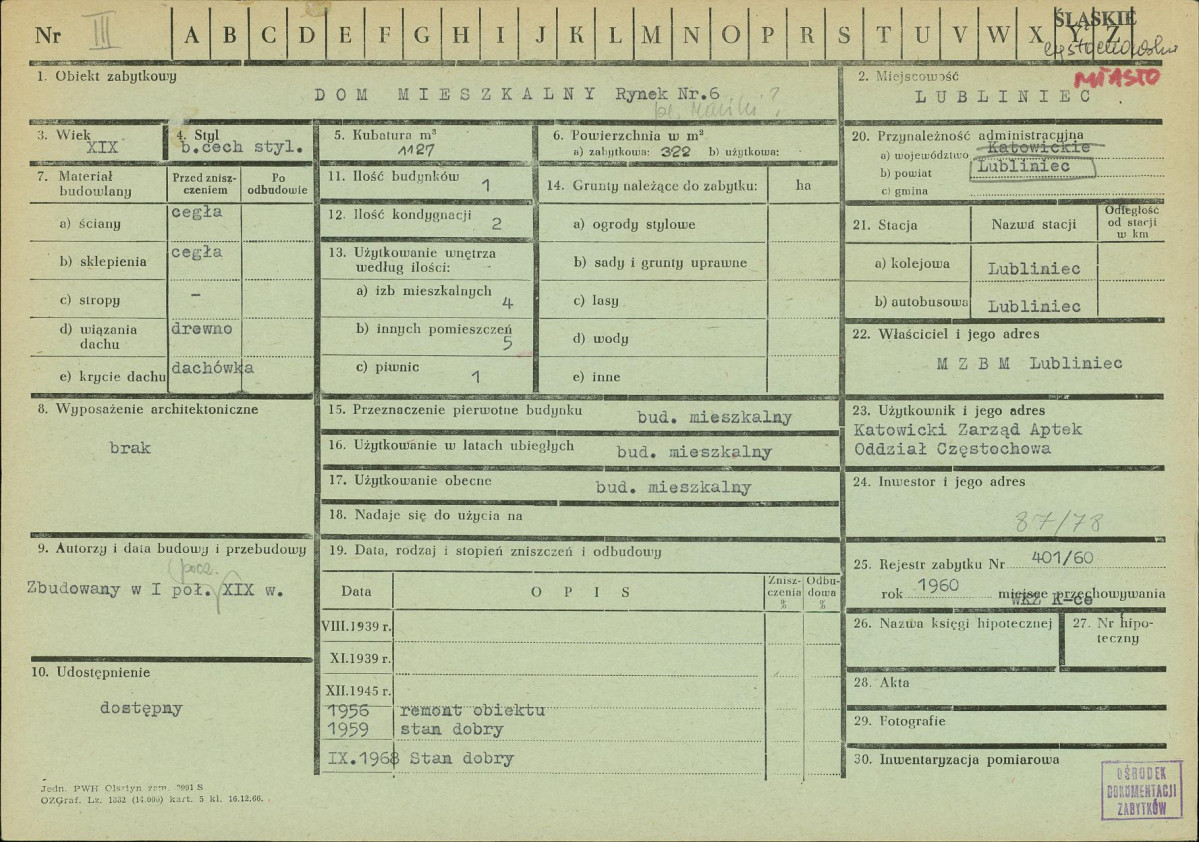 Nr III A B C D E F G H I J K L M N O P R S T U V W X Y Z
ŚLĄSKIE
częstochowskie
MIASTO
1. Obiekt zabytkowy
DOM MIESZKALNY Rynek Nr.6
2. Miejscowość
LUBLINIEC
3. Wiek
XIX
4. Styl
b.cech styl.
5. Kubatura m³
1127
6. Powierzchnia w m²
a) zabytkowa: 322 b) użytkowa:
7. Materiał budowlany
Przed zniszczeniem
Po odbudowie
a) ściany cegła
b) sklepienia cegła
c) stropy –
d) wiązania dachu drewno
e) krycie dachu dachówka
8. Wyposażenie architektoniczne
brak
9. Autorzy i data budowy i przebudowy
pocz.
Zbudowany w I poł. XIX w.
10. Udostępnienie
dostępny
11. Ilość budynków 1
12. Ilość kondygnacji 2
13. Użytkowanie wnętrza według ilości: -
a) izb mieszkalnych 4
b) innych pomieszczeń 5
c) piwnic 1
14. Grunty należące do zabytku: ha
a) ogrody stylowe
b) sady i grunty uprawne
c) lasy
d) wody
e) inne
15. Przeznaczenie pierwotne budynku bud. mieszkalny
16. Użytkowanie w latach ubiegłych bud. mieszkalny
17. Użytkowanie obecne bud. mieszkalny
18. Nadaje się do użycia na
19. Data, rodzaj i stopień zniszczeń i odbudowy
Data OPIS Zniszczenia % Odbudowa %
VIII.1939 r.
XI.1939 r.
XII.1945 r.
1956 remont obiektu
1959 stan dobry
IX.1968 Stan dobry
20. Przynależność administracyjna
a) województwo Katowickie
b) powiat Lubliniec
c) gmina
21. Stacja Nazwa stacji Odległość od stacji w km
a) kolejowa Lubliniec
b) autobusowa Lubliniec
22. Właściciel i jego adres
MZBM Lubliniec
23. Użytkownik i jego adres
Katowicki Zarząd Aptek
Oddział Częstochowa
24. Inwestor i jego adres
87/78
25. Rejestr zabytku Nr 401/60
rok 1960 miejsce przechowywania
WKZ K-ce
26. Nazwa księgi hipotecznej
27. Nr hipoteczny
28. Akta
29. Fotografie
30. Inwentaryzacja pomiarowa
Jedn. PWH Olsztyn zam. 2001 S
OZGraf. Lz. 1332 (14.000) kart. 5 kl. 16.12.66.
OŚRODEK
DOKUMENTACJI
ZABYTKÓW